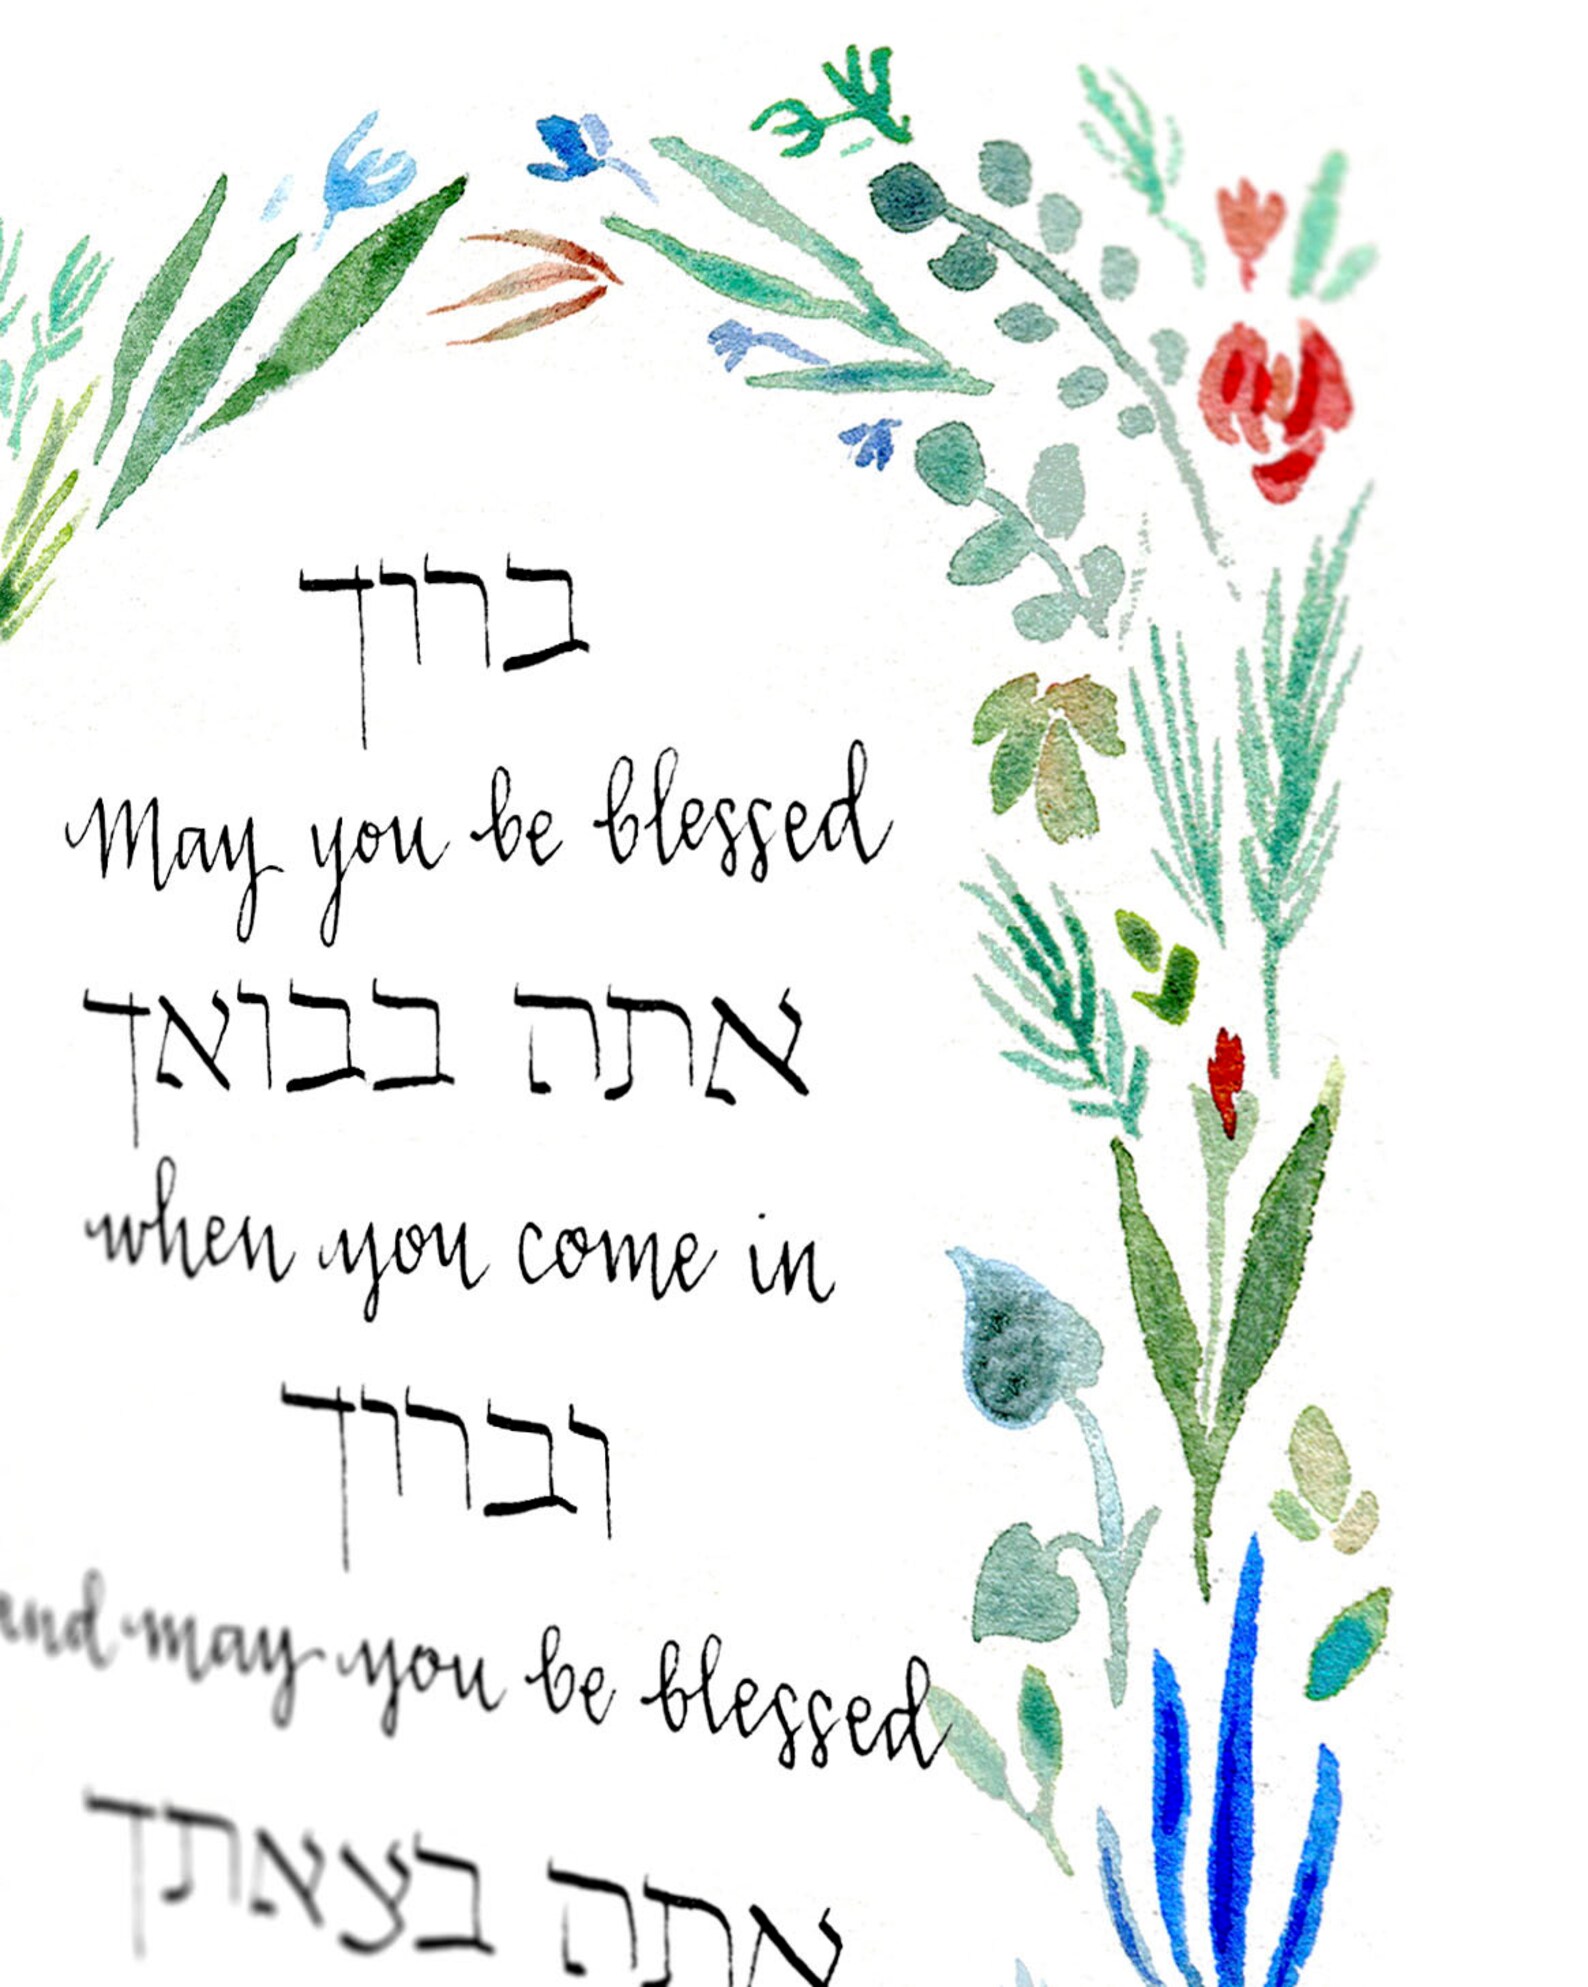 ברוך
May you be blessed
אתה בבואך
when you come in
וברוך
and may you be blessed
אתה בצאתך